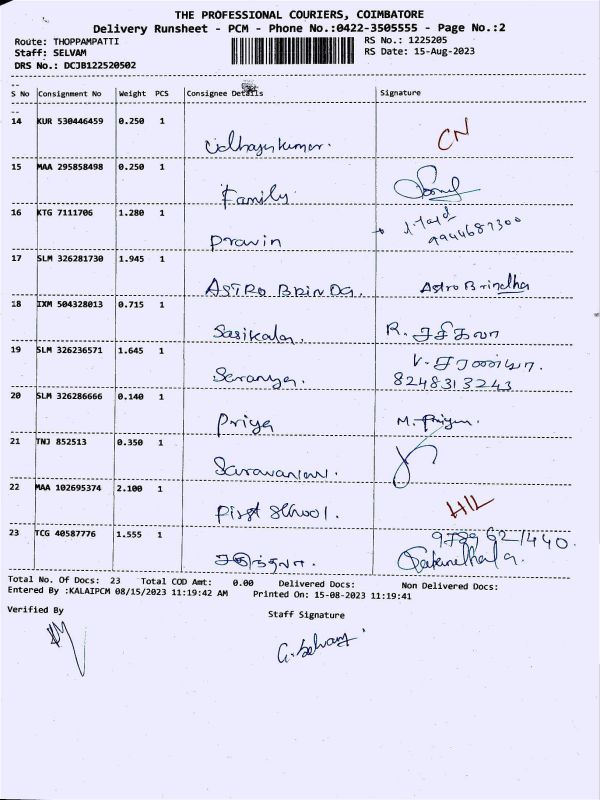 THE PROFESSIONAL COURIERS, COIMBATORE
Delivery Runsheet - PCM - Phone No.:0422-3505555 - Page No.:2
Route: THOPPAMPATTI
RS No.: 1225205
Staff: SELVAM
RS Date: 15-Aug-2023
DRS No.: DCJB122520502
S No Consignment No Weight PCS Consignee Details Signature
14 KUR 530446459 0.250 1 Udhayakumar. CN
15 MAA 295858498 0.250 1 Family.
16 KTG 7111706 1.280 1 Pravin 9944687300
17 SLM 326281730 1.945 1 ASTRO BRINDA. Astro Brindha
18 IXM 504328013 0.715 1 Sasikala. R. சசிகலா
19 SLM 326236571 1.645 1 Saranya. V. சரண்யா.
8248313243
20 SLM 326286666 0.140 1 Priya M. Priya.
21 TNJ 852513 0.350 1 Saravanan.
22 MAA 102695374 2.100 1 First School. HIL
23 TCG 40587776 1.555 1 9789621440.
Total No. Of Docs: 23 Total COD Amt: 0.00 Delivered Docs: Non Delivered Docs:
Entered By :KALAIPCM 08/15/2023 11:19:42 AM Printed On: 15-08-2023 11:19:41
Verified By
Staff Signature
G. Selvam